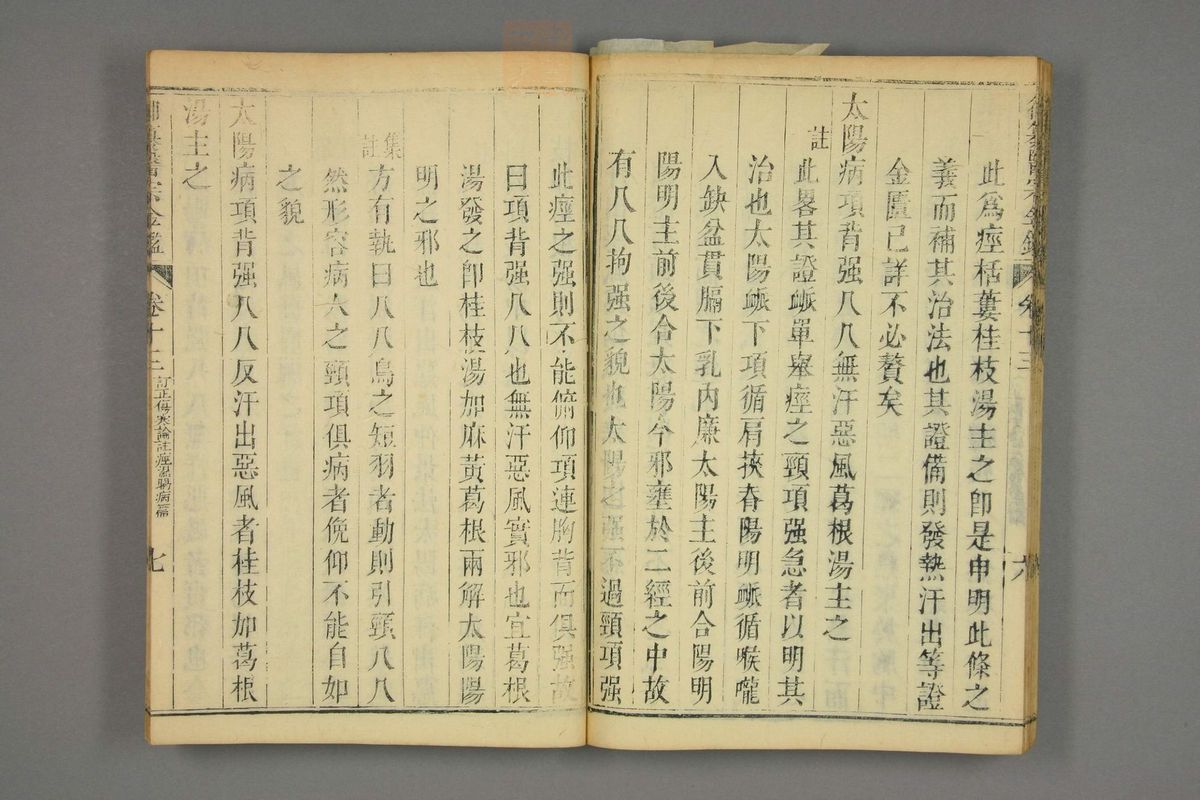 此為痙栝蔞桂枝湯主之卽是申明此條之
義而補其治法也其證備則發熱汗出等證
金匱已詳不必贅矣
太陽病項背强几几無汗惡風葛根湯主之
註
此畧其證䘑單舉痙之頸項强急者以明其
治也太陽䘑下項循肩挾脊陽明䘑循喉嚨
入缺盆貫膈下乳內廉太陽主後前合陽明
陽明主前後合太陽今邪壅於二經之中故
有几几拘强之貌也太陽之强不過頸項强
此痙之强則不能俯仰項連胸背而俱强故
曰項背强几几也無汗惡風實邪也宜葛根
湯發之卽桂枝湯加麻黃葛根兩解太陽陽
明之邪也
集註
方有執曰几几鳥之短羽者動則引頸几几
然形容病人之頸項俱病者俛仰不能自如
之貌
太陽病項背强几几反汗出惡風者桂枝加葛根
湯主之
御纂醫宗金鑑
卷十三
訂正傷寒論註痙濕暍病篇
七
卷十三
六